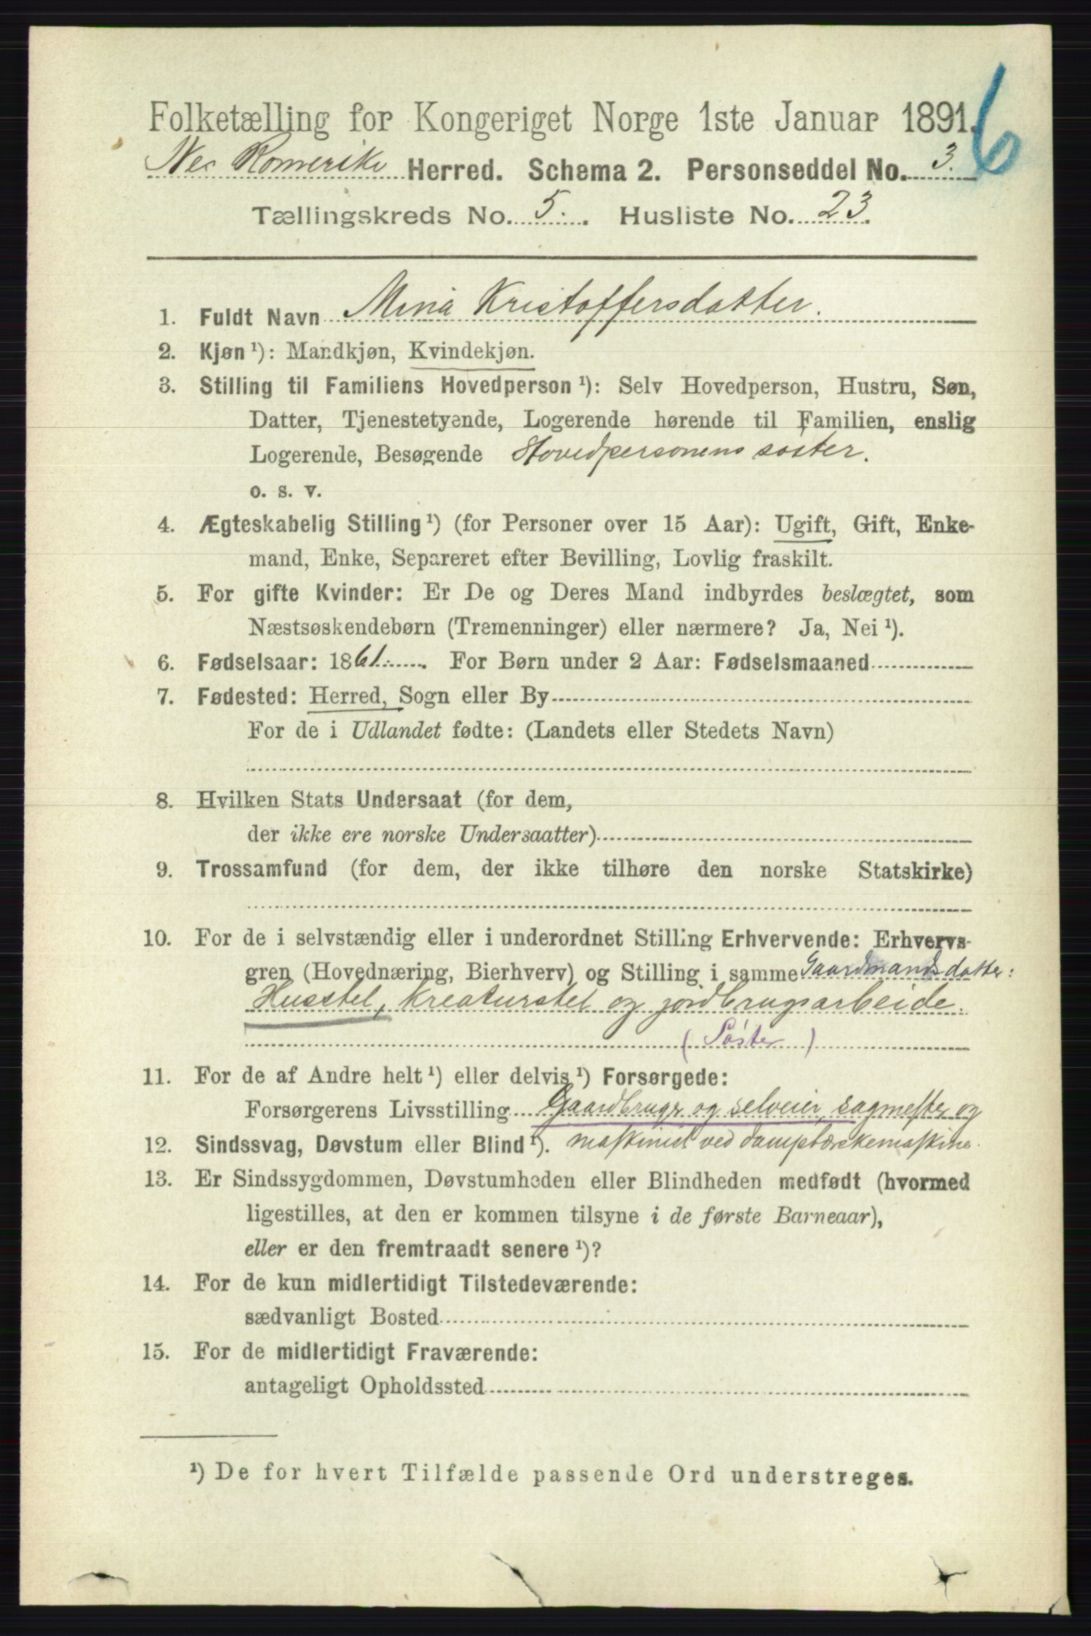 6
Folketælling for Kongeriget Norge 1ste Januar 1891.
Nes Romerike Herred. Schema 2. Personseddel No. 3.
Tællingskreds No. 5. Husliste No. 23.
1. Fuldt Navn Mina Kristoffersdatter.
2. Kjøn ¹): Mandkjøn, Kvindekjøn.
3. Stilling til Familiens Hovedperson ¹): Selv Hovedperson, Hustru, Søn,
Datter, Tjenestetyende, Logerende hørende til Familien, enslig
Logerende, Besøgende Hovedpersonens søster.
o. s. v.
4. Ægteskabelig Stilling ¹) (for Personer over 15 Aar): Ugift, Gift, Enke-
mand, Enke, Separeret efter Bevilling, Lovlig fraskilt.
5. For gifte Kvinder: Er De og Deres Mand indbyrdes beslægtet, som
Næstsøskendebørn (Tremenninger) eller nærmere? Ja, Nei ¹).
6. Fødselsaar: 1861. For Børn under 2 Aar: Fødselsmaaned
7. Fødested: Herred, Sogn eller By
For de i Udlandet fødte: (Landets eller Stedets Navn)
8. Hvilken Stats Undersaat (for dem,
der ikke ere norske Undersaatter)
9. Trossamfund (for dem, der ikke tilhøre den norske Statskirke)
10. For de i selvstændig eller i underordnet Stilling Erhvervende: Erhvervs-
gren (Hovednæring, Bierhverv) og Stilling i samme Gaardmandsdatter:
Husstel, kreaturstel og jordbrugsarbeide.
(Søster)
11. For de af Andre helt ¹) eller delvis ¹) Forsørgede:
Forsørgerens Livsstilling Gaardbruger og selveier, sagmester og
12. Sindssvag, Døvstum eller Blind ¹). maskinist ved damptærskemaskine.
13. Er Sindssygdommen, Døvstumheden eller Blindheden medfødt (hvormed
ligestilles, at den er kommen tilsyne i de første Barneaar),
eller er den fremtraadt senere ¹)?
14. For de kun midlertidigt Tilstedeværende:
sædvanligt Bosted
15. For de midlertidigt Fraværende:
antageligt Opholdssted
¹) De for hvert Tilfælde passende Ord understreges.